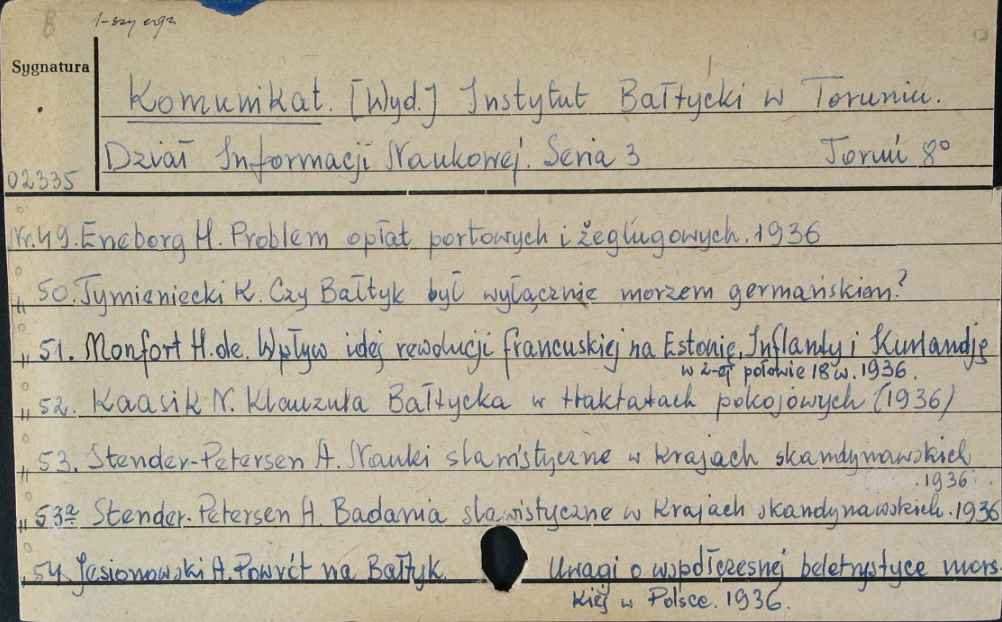 B 1-szy egz
Sygnatura
Komunikat. [Wyd.] Instytut Bałtycki w Toruniu.
Dział Informacji Naukowej. Seria 3 Toruń 8°
02335
Nr.49. Eneborg H. Problem opłat portowych i żeglugowych. 1936
„ 50. Tymieniecki K. Czy Bałtyk był wyłącznie morzem germańskiem?
„ 51. Monfort H. de. Wpływ idej rewolucji francuskiej na Estonię, Inflanty i Kurlandję
w 2-ej połowie 18 w. 1936.
„ 52. Kaasik N. Klauzula Bałtycka w traktatach pokojowych (1936)
„ 53. Stender-Petersen A. Nauki slawistyczne w krajach skandynawskich
.1936.
„ 53a Stender-Petersen A. Badania slawistyczne w Krajach skandynawskich. 1936
„ 54. Jesionowski A. Powrót na Bałtyk. Uwagi o współczesnej beletrystyce mors-
kiej w Polsce. 1936.